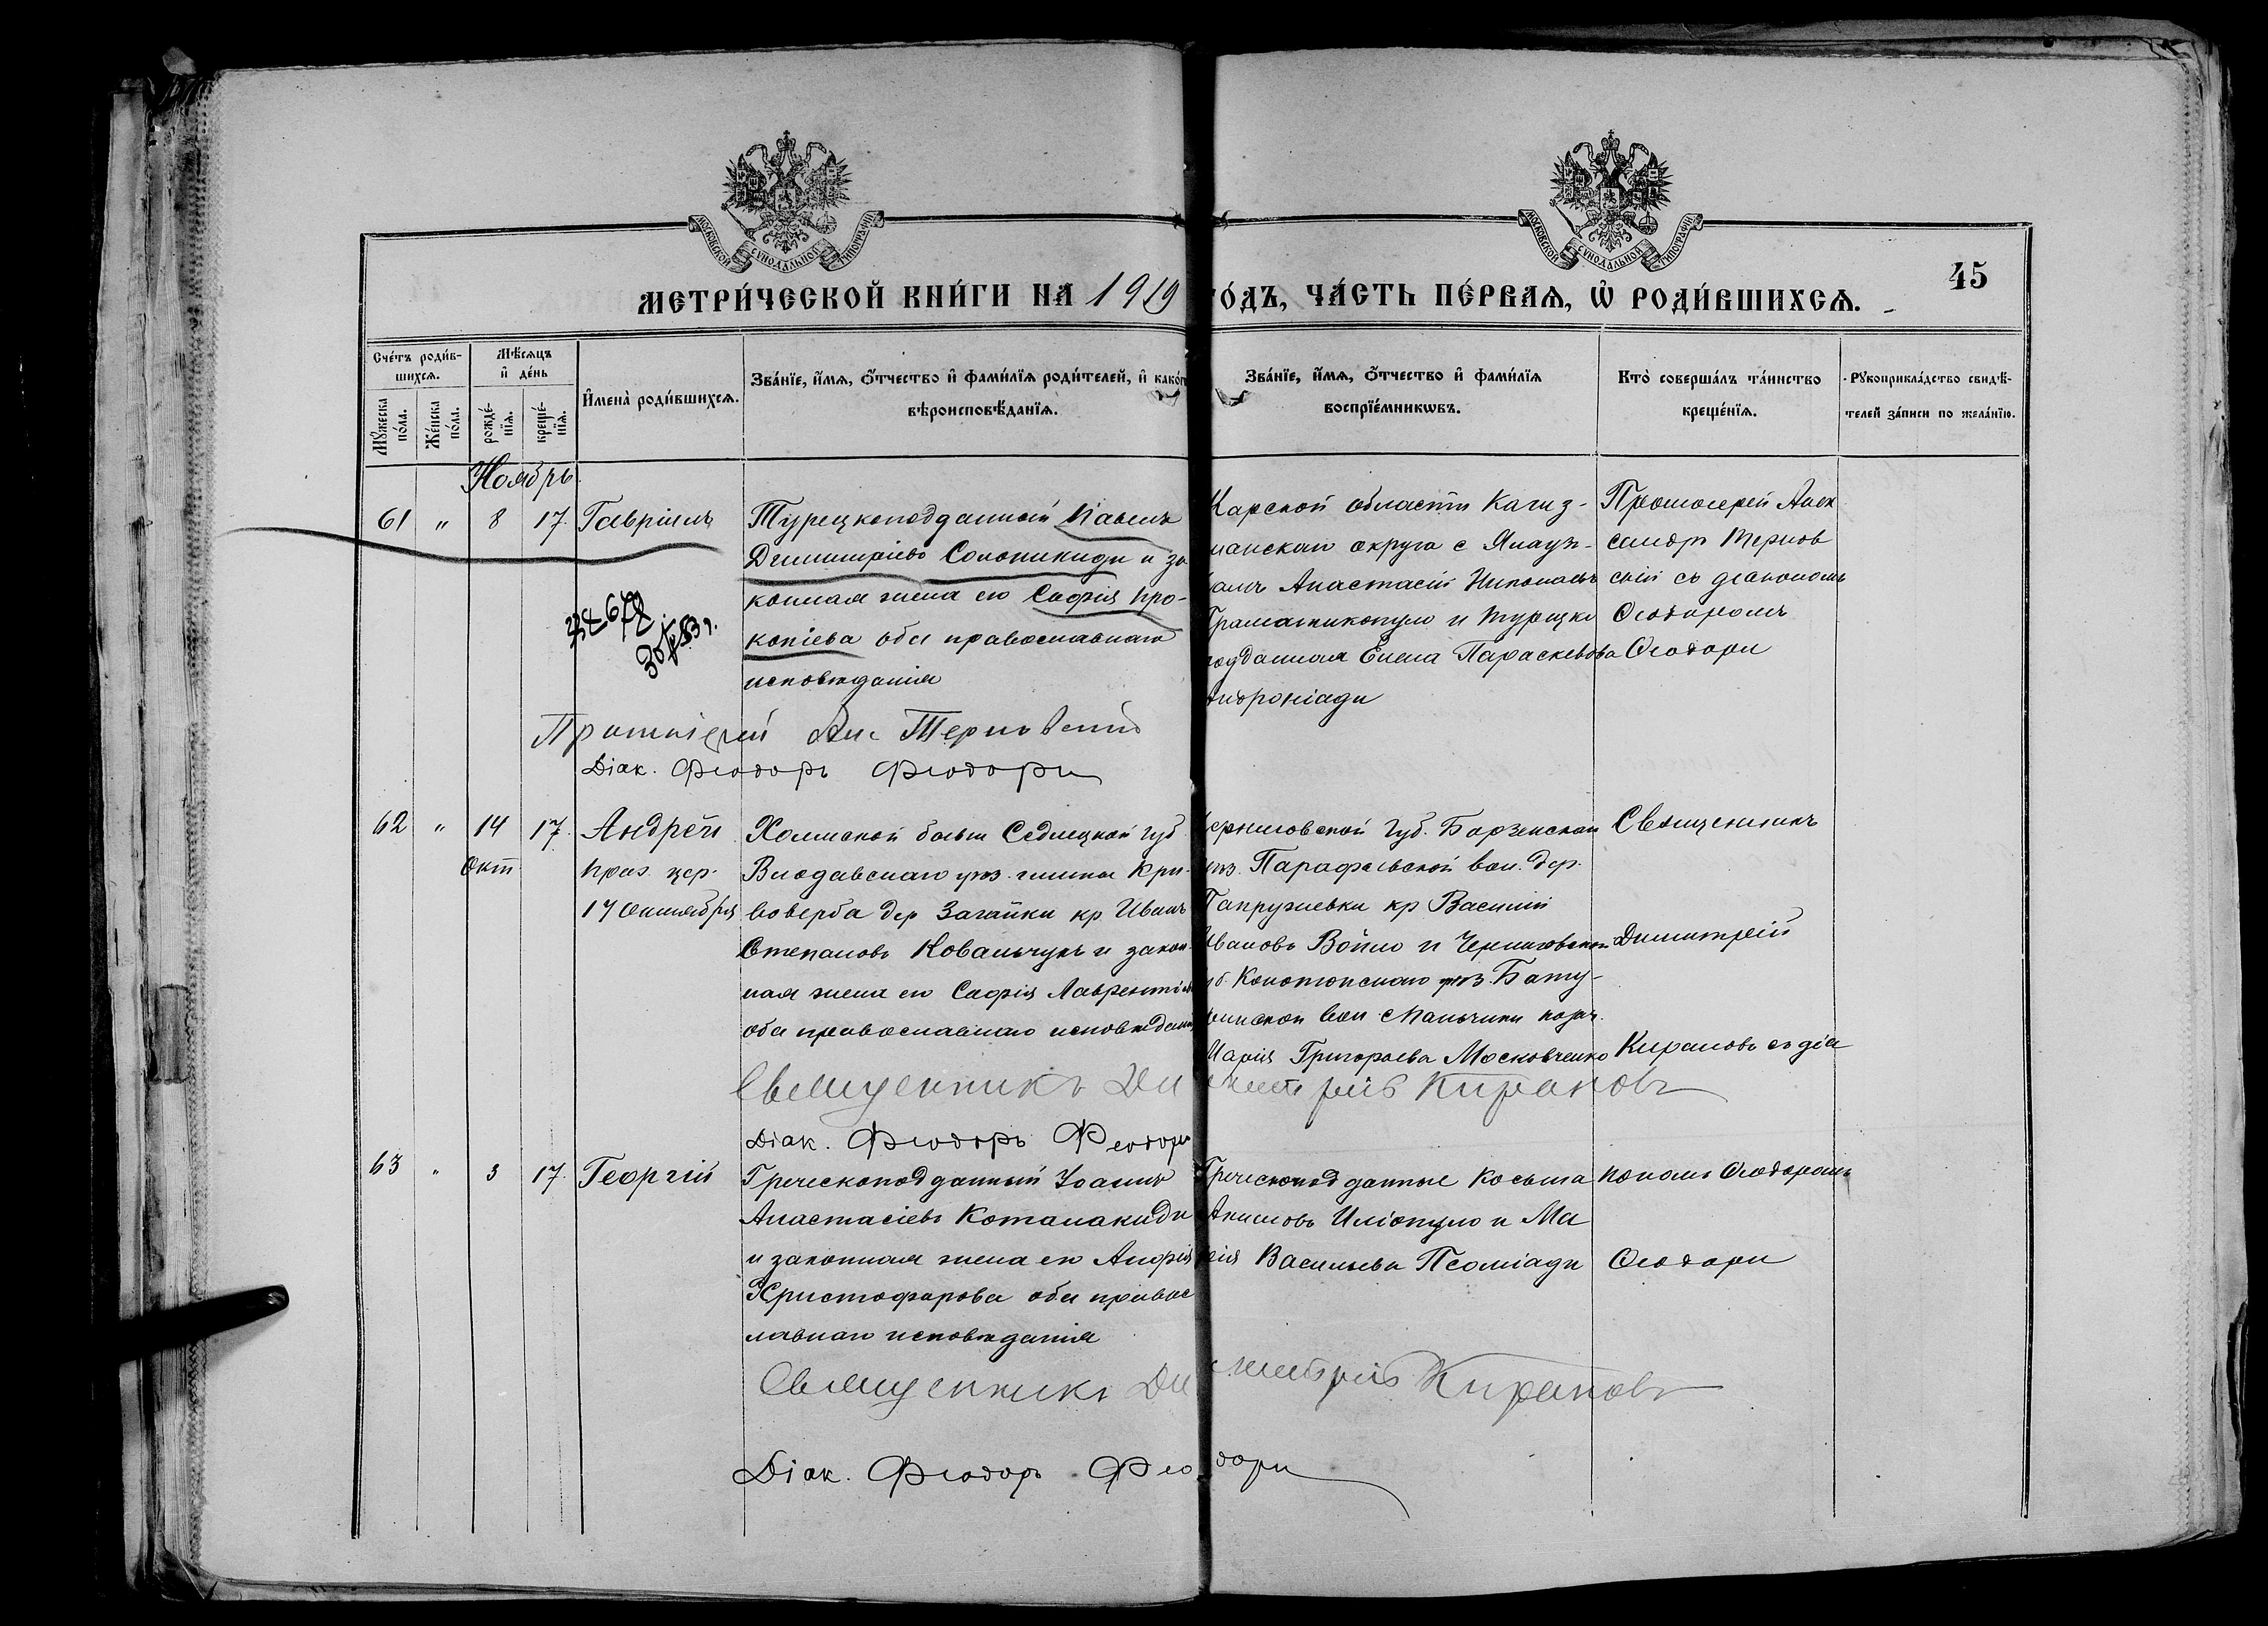 МОСКОВСКОЙ СѴНОДАЛЬНОЙ ТИПОГРАФИИ
МОСКОВСКОЙ СѴНОДАЛЬНОЙ ТИПОГРАФИИ
45
МЕТРИ́ЧЕСКОЙ КНИ́ГИ НА 1919 ГО́ДЪ, ЧА́СТЬ ПЕ́РВАѦ, Ѡ҆ РОДИ́ВШИХСѦ.
Сче́тъ роди́в-
шихсѧ.
Мѣ́сѧцъ
и҆ де́нь
Мꙋ́жеска
по́ла.
Же́нска
по́ла.
рожде́-
нїѧ.
креще́-
нїѧ.
И҆мена̀ роди́вшихсѧ.
Зва́нїе, и҆́мѧ, ѻ҆́тчество и҆ фами́лїѧ роди́телей, и҆ како́гѡ
вѣроисповѣ́данїѧ.
Зва́нїе, и҆́мѧ, ѻ҆́тчество и҆ фами́лїѧ
воспрїе́мникѡвъ.
Кто̀ соверша́лъ та́инство
креще́нїѧ.
Рꙋкоприкла́дство свидѣ́-
телей за́писи по жела́нїю.
Ноябрь.
61 " 8 17. Гавріилъ
Турецкоподданный Павелъ
Димитріевъ Солоникиди и за
конная жена его Софія Про-
копіева оба православнаго
исповѣданія
Карской области Кагиз-
манскаго округа с
Анастасій Николаевъ
Граматикопуло и Турецко
подданная Елена Параскевова
Андроніади
Протоіерей Алек
сандръ Тернов
скій съ діакономъ
Ѳеодоромъ
Ѳеодори
Протоіерей Ал. Терновскій
Діак. Феодоръ Феодори
62 " 14 17. Андрей
Окт
17 Октября
Холмской бывш Седлецкой губ.
Влодавскаго уѣз. гмины Кри-
воверба дер Загайки кр Иванъ
Степановъ Ковальчукъ и закон-
ная жена его Софія Лаврентіева
оба православнаго исповѣданія
Черниговской Губ. Борзенскаго
уѣз. Парафіевской вол. дер.
кр Василій
Ивановъ Война и Черниговской
губ. Конотопскаго уѣз. Бату-
ринской вол Мальчики козач.
Марія Григорьева Московченко
Священникъ
Димитрій
Кираковъ съ діа
Священникъ Димитрій Кираковъ
Діак. Феодоръ Феодори
63 " 3 17. Георгій
Греческоподданный Іоаннъ
Анастасіевъ Котанакиди
и законная жена его Анфія
Христофорова оба правос
лавнаго исповѣданія
Греческоподданные Косьма
Акимовъ Иліопуло и Ма
рія Васильева Псоміади
кономъ Ѳеодоромъ
Ѳеодори
Священникъ Димитрій Кираковъ
Діак. Феодоръ Феодори